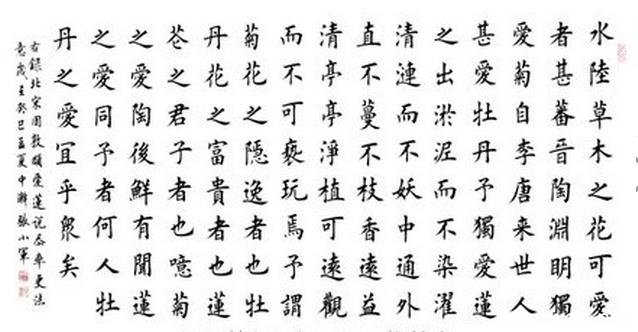 水陸草木之花可愛
者甚蕃晋陶淵明獨
愛菊自李唐来世人
甚愛牡丹予獨愛蓮
之出淤泥而不染濯
清漣而不妖中通外
直不蔓不枝香遠益
清亭亭淨植可遠觀
而不可褻玩焉予謂
菊花之隱逸者也牡
丹花之富貴者也蓮
花之君子者也噫菊
之愛陶後鮮有聞蓮
之愛同予者何人牡
丹之愛宜乎衆矣
右錄北宋周敦頤愛蓮説
癸巳孟夏中澣張小軍